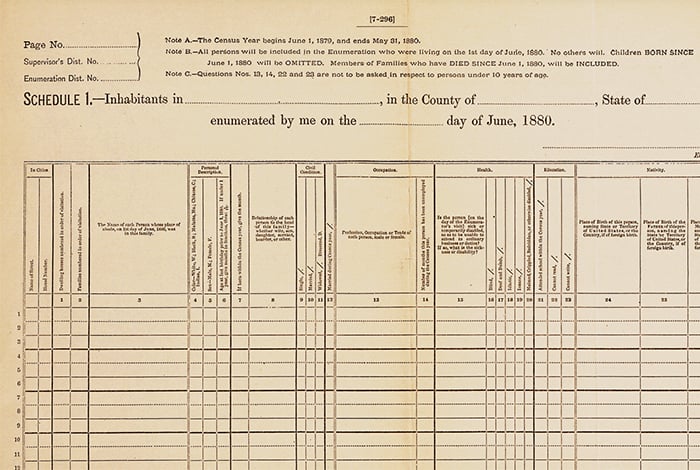 [7-296]
Page No.
Supervisor's Dist. No.
Enumeration Dist. No.
Note A.—The Census Year begins June 1, 1879, and ends May 31, 1880.
Note B.—All persons will be included in the Enumeration who were living on the 1st day of June, 1880. No others will. Children BORN SINCE
June 1, 1880 will be OMITTED. Members of Families who have DIED SINCE June 1, 1880, will be INCLUDED.
Note C.—Questions Nos. 13, 14, 22 and 23 are not to be asked in respect to persons under 10 years of age.
SCHEDULE 1.—Inhabitants in , in the County of , State of
enumerated by me on the day of June, 1880.
In Cities.
Personal
Description.
Civil
Condition.
Occupation.
Health.
Education.
Nativity.
Name of Street.
House Number.
Dwelling houses numbered in order of visitation.
Families numbered in order of visitation.
The Name of each Person whose place of
abode, on 1st day of June, 1880, was
in this family.
Color—White, W.; Black, B.; Mulatto, Mu.; Chinese, C.;
Indian, I.
Sex—Male, M.; Female, F.
If born within the Census year, give the month.
Relationship of each
person to the head
of this family—
whether wife, son,
daughter, servant,
boarder, or other.
Single, /
Married, /
Widowed, / Divorced, D.
Married during Census year, /
Profession, Occupation or Trade of
each person, male or female.
Number of months this person has been unemployed
during the Census year.
Is the person [on the day
of the Enumerator's
visit] sick or
temporarily disabled,
so as to be unable to
attend to ordinary
business or duties?
If so, what is the sickness
or disability?
Blind, /
Deaf and Dumb, /
Idiotic, /
Insane, /
Maimed, Crippled, Bedridden, or otherwise disabled, /
Attended school within the Census year, /
Cannot read, /
Cannot write, /
Place of Birth of this person,
naming State or Territory
of United States, or the
Country, if of foreign birth.
Place of Birth of the
Father of this person,
naming the State
or Territory
of United States,
or the Country, if of
foreign birth.
1 2 3 4 5 6 7 8 9 10 11 12 13 14 15 16 17 18 19 20 21 22 23 24 25
1
2
3
4
5
6
7
8
9
10
11
12